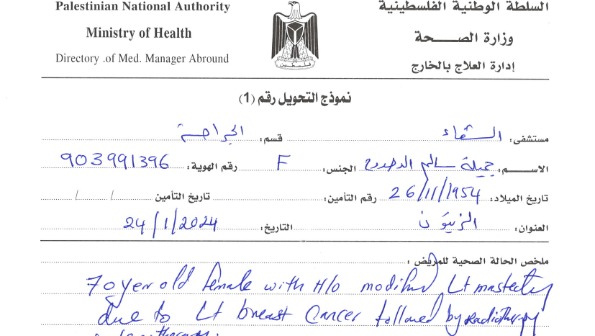 Palestinian National Authority
Ministry of Health
Directory .of Med. Manager Abround
السلطة الوطنية الفلسطينية
وزارة الصــحة
إدارة العلاج بالخارج
نموذج التحويل رقم (1)
مستشفى: الشفاء قسم: الجراحة
الاسم: جميلة سالم الجنس: F رقم الهوية: 903991396
تاريخ الميلاد: 26/11/1954 رقم التأمين: تاريخ التأمين / /
العنوان: الزيتون التاريخ: 24/1/2024
ملخص الحالة الصحية للمريض:
70 year old female with H/o modified Lt mastectomy
due to Lt breast Cancer followed by radiotherapy